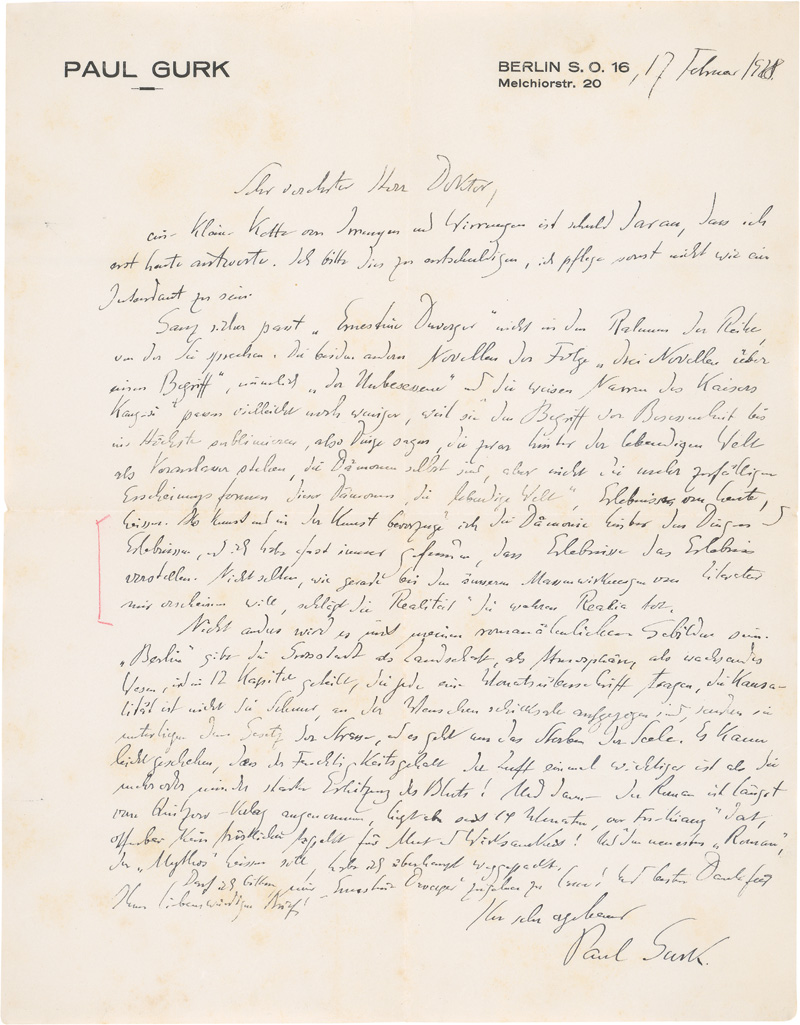 PAUL GURK
BERLIN S. O. 16, 17 Februar 1928.
Melchiorstr. 20
Sehr verehrter Herr Doktor,
eine kleine Kette von Irrungen und Wirrungen ist schuld daran, dass ich
erst heute antworte. Ich bitte dies zu entschuldigen, ich pflege sonst nicht wie ein
Intendant zu sein.
Ganz sicher passt „Ernestine Duverger" nicht in den Rahmen der Reihe,
von der Sie sprechen. Die beiden anderen Novellen der Folge „drei Novellen über
einen Begriff", nämlich „der Unbesessene" und die weisen Narren des Kaisers
" passen vielleicht noch weniger, weil sie den Begriff der Besessenheit bis
ins Höchste sublimieren, also Dinge sagen, die zwar hinter der lebendigen Welt
als Veranlasser stehen, die Dämonen selbst sind, aber nicht die mehr zufälligen
Erscheinungsformen dieser Dämonen, die „lebendige Welt", Erlebnisse von heute,
heissen. Als Kunst und in der Kunst bevorzuge ich die Dämonie hinter den Dingen und
Erlebnissen, und ich habe fast immer gefunden, dass Erlebnisse das Erlebnis
verstellen. Nicht selten, wie gerade bei den äusseren Massenwirkungen von Literatur
mir erscheinen will, schlägt die „Realität" die wahren Realia tot.
Nicht anders wird es mit meinen romanähnlichen Gebilden sein.
„Berlin" gibt die Grosstadt als Landschaft, als Atmosphäre, als wachsendes
Wesen, ist in 12 Kapitel geteilt, die jede eine Monatsüberschrift tragen, die Kausa-
lität ist nicht die Schnur, an der Menschenschicksale aufgezogen sind, sondern sie
unterliegen dem Gesetz der Strasse, und es geht um das Sterben der Seele. Es kann
leicht geschehen, dass der Feuchtigkeitsgehalt der Luft einmal wichtiger ist als die
mehr oder minder starke Erhitzung des Bluts! Und dann – der Roman ist längst
vom Verlag angenommen, liegt ab seit 14 Monaten, „vor Frühling" dat,
offenbar kein Aspekt für Mut und Wirksamkeit! Und den neuesten „Roman",
der „Mythos" heissen soll, habe ich überhaupt weggepackt.
Darf ich bitten, mir „Ernestine Duverger" zugehen zu lassen! Und besten Dank für
Ihren liebenswürdigen Brief!
Ihr sehr ergebener
Paul Gurk.